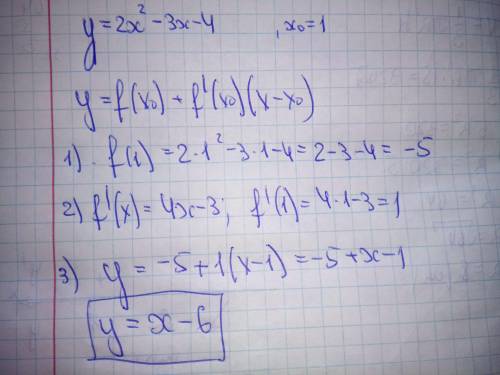 y = 2x² - 3x - 4 , x₀ = 1
y = f(x₀) + f'(x₀)(x - x₀)
1) . f(1) = 2·1² - 3·1 - 4 = 2 - 3 - 4 = -5
2) f'(x) = 4x - 3; f'(1) = 4·1 - 3 = 1
3) y = -5 + 1(x - 1) = -5 + x - 1
y = x - 6